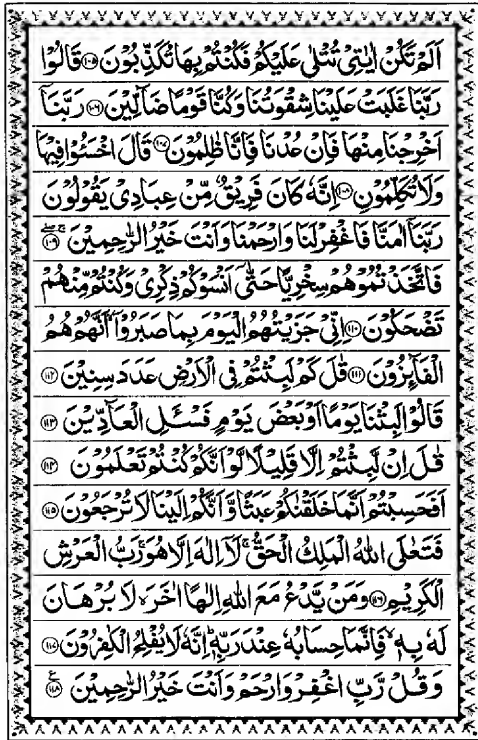 اَلَمۡ تَكُنۡ اٰيٰتِىۡ تُتۡلٰى عَلَيۡكُمۡ فَكُنۡتُمۡ بِهَا تُكَذِّبُوۡنَ ﴿۱۰۵﴾ قَالُوۡا
رَبَّنَا غَلَبَتۡ عَلَيۡنَا شِقۡوَتُنَا وَكُنَّا قَوۡمًا ضَآلِّيۡنَ ﴿۱۰۶﴾ رَبَّنَاۤ
اَخۡرِجۡنَا مِنۡهَا فَاِنۡ عُدۡنَا فَاِنَّا ظٰلِمُوۡنَ ﴿۱۰۷﴾ قَالَ اخۡسَئُوۡا فِيۡهَا
وَلَا تُكَلِّمُوۡنِ ﴿۱۰۸﴾ اِنَّهٗ كَانَ فَرِيۡقٌ مِّنۡ عِبَادِىۡ يَقُوۡلُوۡنَ
رَبَّنَاۤ اٰمَنَّا فَاغۡفِرۡ لَنَا وَارۡحَمۡنَا وَاَنۡتَ خَيۡرُ الرّٰحِمِيۡنَ ﴿۱۰۹﴾
فَاتَّخَذۡتُمُوۡهُمۡ سِخۡرِيًّا حَتّٰٓى اَنۡسَوۡكُمۡ ذِكۡرِىۡ وَكُنۡتُمۡ مِّنۡهُمۡ
تَضۡحَكُوۡنَ ﴿۱۱۰﴾ اِنِّىۡ جَزَيۡتُهُمُ الۡيَوۡمَ بِمَا صَبَرُوۡۤا اَنَّهُمۡ هُمُ
الۡفَآئِزُوۡنَ ﴿۱۱۱﴾ قٰلَ كَمۡ لَبِثۡتُمۡ فِى الۡاَرۡضِ عَدَدَ سِنِيۡنَ ﴿۱۱۲﴾
قَالُوۡا لَبِثۡنَا يَوۡمًا اَوۡ بَعۡضَ يَوۡمٍ فَسۡـئَلِ الۡعَآدِّيۡنَ ﴿۱۱۳﴾
قٰلَ اِنۡ لَّبِثۡتُمۡ اِلَّا قَلِيۡلًا لَّوۡ اَنَّكُمۡ كُنۡتُمۡ تَعۡلَمُوۡنَ ﴿۱۱۴﴾
اَفَحَسِبۡتُمۡ اَنَّمَا خَلَقۡنٰكُمۡ عَبَثًا وَّاَنَّكُمۡ اِلَيۡنَا لَا تُرۡجَعُوۡنَ ﴿۱۱۵﴾
فَتَعٰلَى اللّٰهُ الۡمَلِكُ الۡحَقُّ ۚ لَاۤ اِلٰهَ اِلَّا هُوَ ۚ رَبُّ الۡعَرۡشِ
الۡكَرِيۡمِ ﴿۱۱۶﴾ وَمَنۡ يَّدۡعُ مَعَ اللّٰهِ اِلٰهًا اٰخَرَ ۙ لَا بُرۡهَانَ
لَهٗ بِهٖ ۙ فَاِنَّمَا حِسَابُهٗ عِنۡدَ رَبِّهٖ ؕ اِنَّهٗ لَا يُفۡلِحُ الۡكٰفِرُوۡنَ ﴿۱۱۷﴾
وَقُلۡ رَّبِّ اغۡفِرۡ وَارۡحَمۡ وَاَنۡتَ خَيۡرُ الرّٰحِمِيۡنَ ﴿۱۱۸﴾